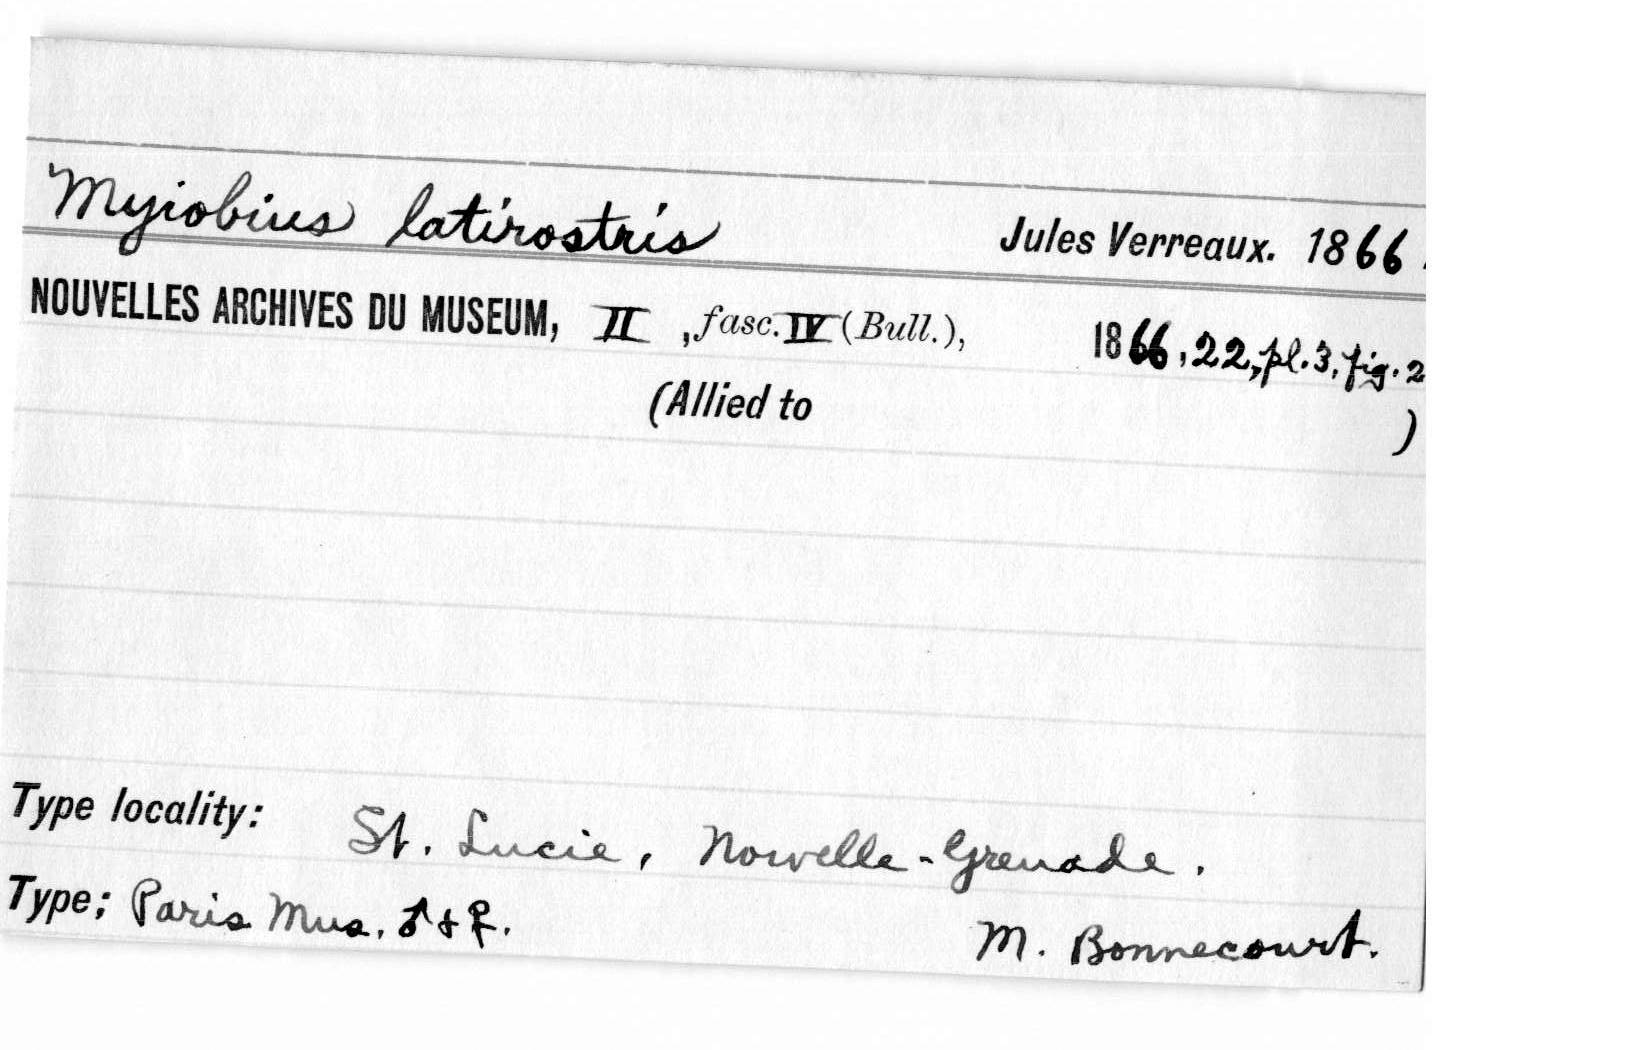 Myiobius latirostris Jules Verreaux. 1866.
NOUVELLES ARCHIVES DU MUSEUM, II, fasc. IV (Bull.), 1866, 22, pl. 3, fig. 2
(Allied to )
Type locality: St. Lucie, Nouvelle-Grenade.
Type; Paris Mus. ♂ & ♀. M. Bonnecourt.